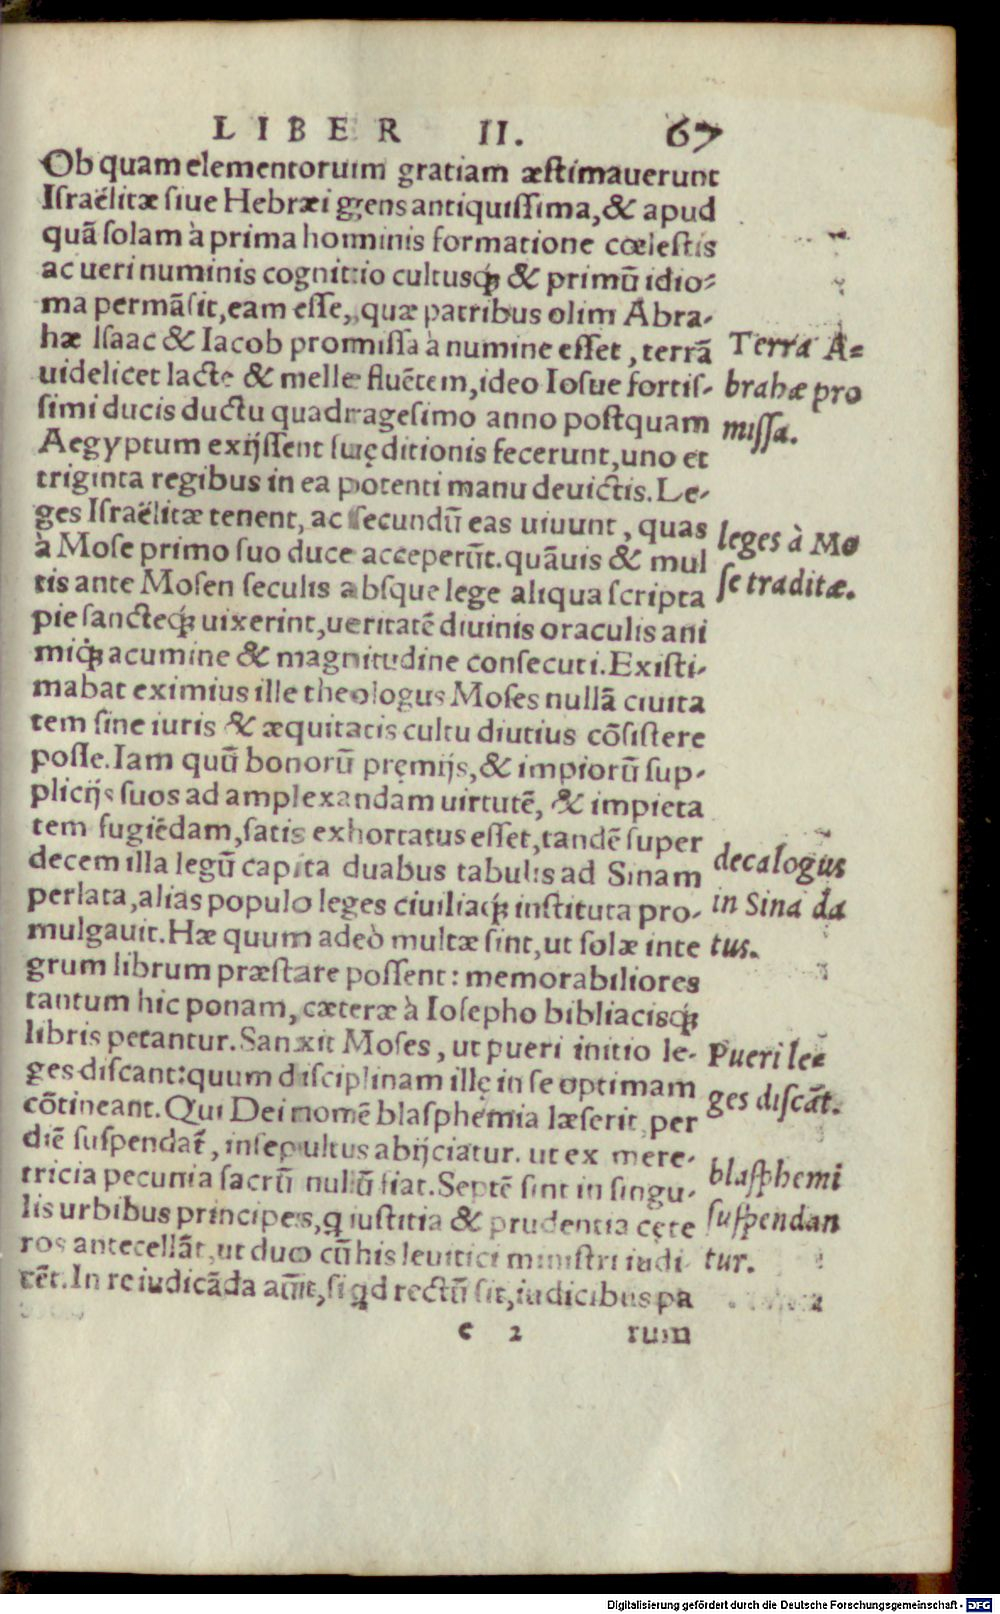 LIBER II. 67
Ob quam elementorum gratiam æstimauerunt
Israëlitæ siue Hebræi gens antiquissima, & apud
quã solam à prima hominis formatione cœlestis
ac ueri numinis cognitio cultusq; & primũ idio-
ma permãsit, eam esse, quæ patribus olim Abra-
hæ Isaac & Iacob promissa à numine esset, terrã
uidelicet lacte & melle fluẽtem, ideo Iosue fortis-
simi ducis ductu quadragesimo anno postquam
Aegyptum exijssent suę ditionis fecerunt, uno et
triginta regibus in ea potenti manu deuictis. Le-
ges Israëlitæ tenent, ac secundũ eas uiuunt, quas
à Mose primo suo duce acceperũt. quãuis & mul
tis ante Mosen seculis absque lege aliqua scripta
pie sancteq; uixerint, ueritatẽ diuinis oraculis ani
miq; acumine & magnitudine consecuti. Existi-
mabat eximius ille theologus Moses nullã ciuita
tem sine iuris & æquitatis cultu diutius cõsistere
posse. Iam quũ bonorũ pręmijs, & impiorũ sup-
plicijs suos ad amplexandam uirtutẽ, & impieta
tem fugiẽdam, satis exhortatus esset, tandẽ super
decem illa legũ capita duabus tabulis ad Sinam
perlata, alias populo leges ciuiliaq; instituta pro-
mulgauit. Hæ quum adeò multæ sint, ut solæ inte
grum librum præstare possent: memorabiliores
tantum hic ponam, cæteræ à Iosepho bibliacisq;
libris petantur. Sanxit Moses, ut pueri initio le-
ges discant: quum disciplinam illę in se optimam
cõtineant. Qui Dei nomẽ blasphemia læserit, per
diẽ suspendat̃, insepultus abijciatur. ut ex mere-
tricia pecunia sacrũ nullũ fiat. Septẽ sint in singu-
lis urbibus principes, q iustitia & prudentia cęte
ros antecellãt, ut duo cũ his leuitici ministri iudi
cẽt. In re iudicãda aũt, si qd rectũ sit, iudicibus pa
e 2 rum
Terra A-
brahæ pro
missa.
leges à Mo
se traditæ.
decalogus
in Sina da
tus.
Pueri le-
ges discãt.
blasphemi
suspendan
tur.
Digitalisierung gefördert durch die Deutsche Forschungsgemeinschaft - DFG